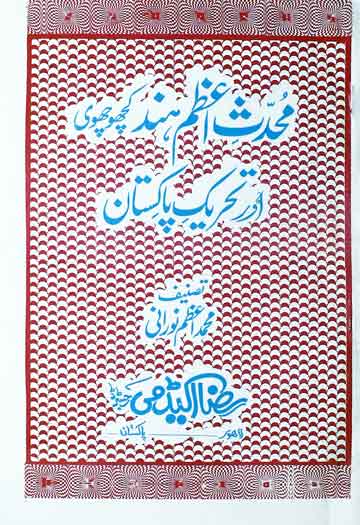 محدّثِ اعظم ہند کچھوچھوی
اور تحریکِ پاکستان
تصنیف
محمد اعظم نورانی
رضا اکیڈمی رجسٹرڈ
لاہور پاکستان